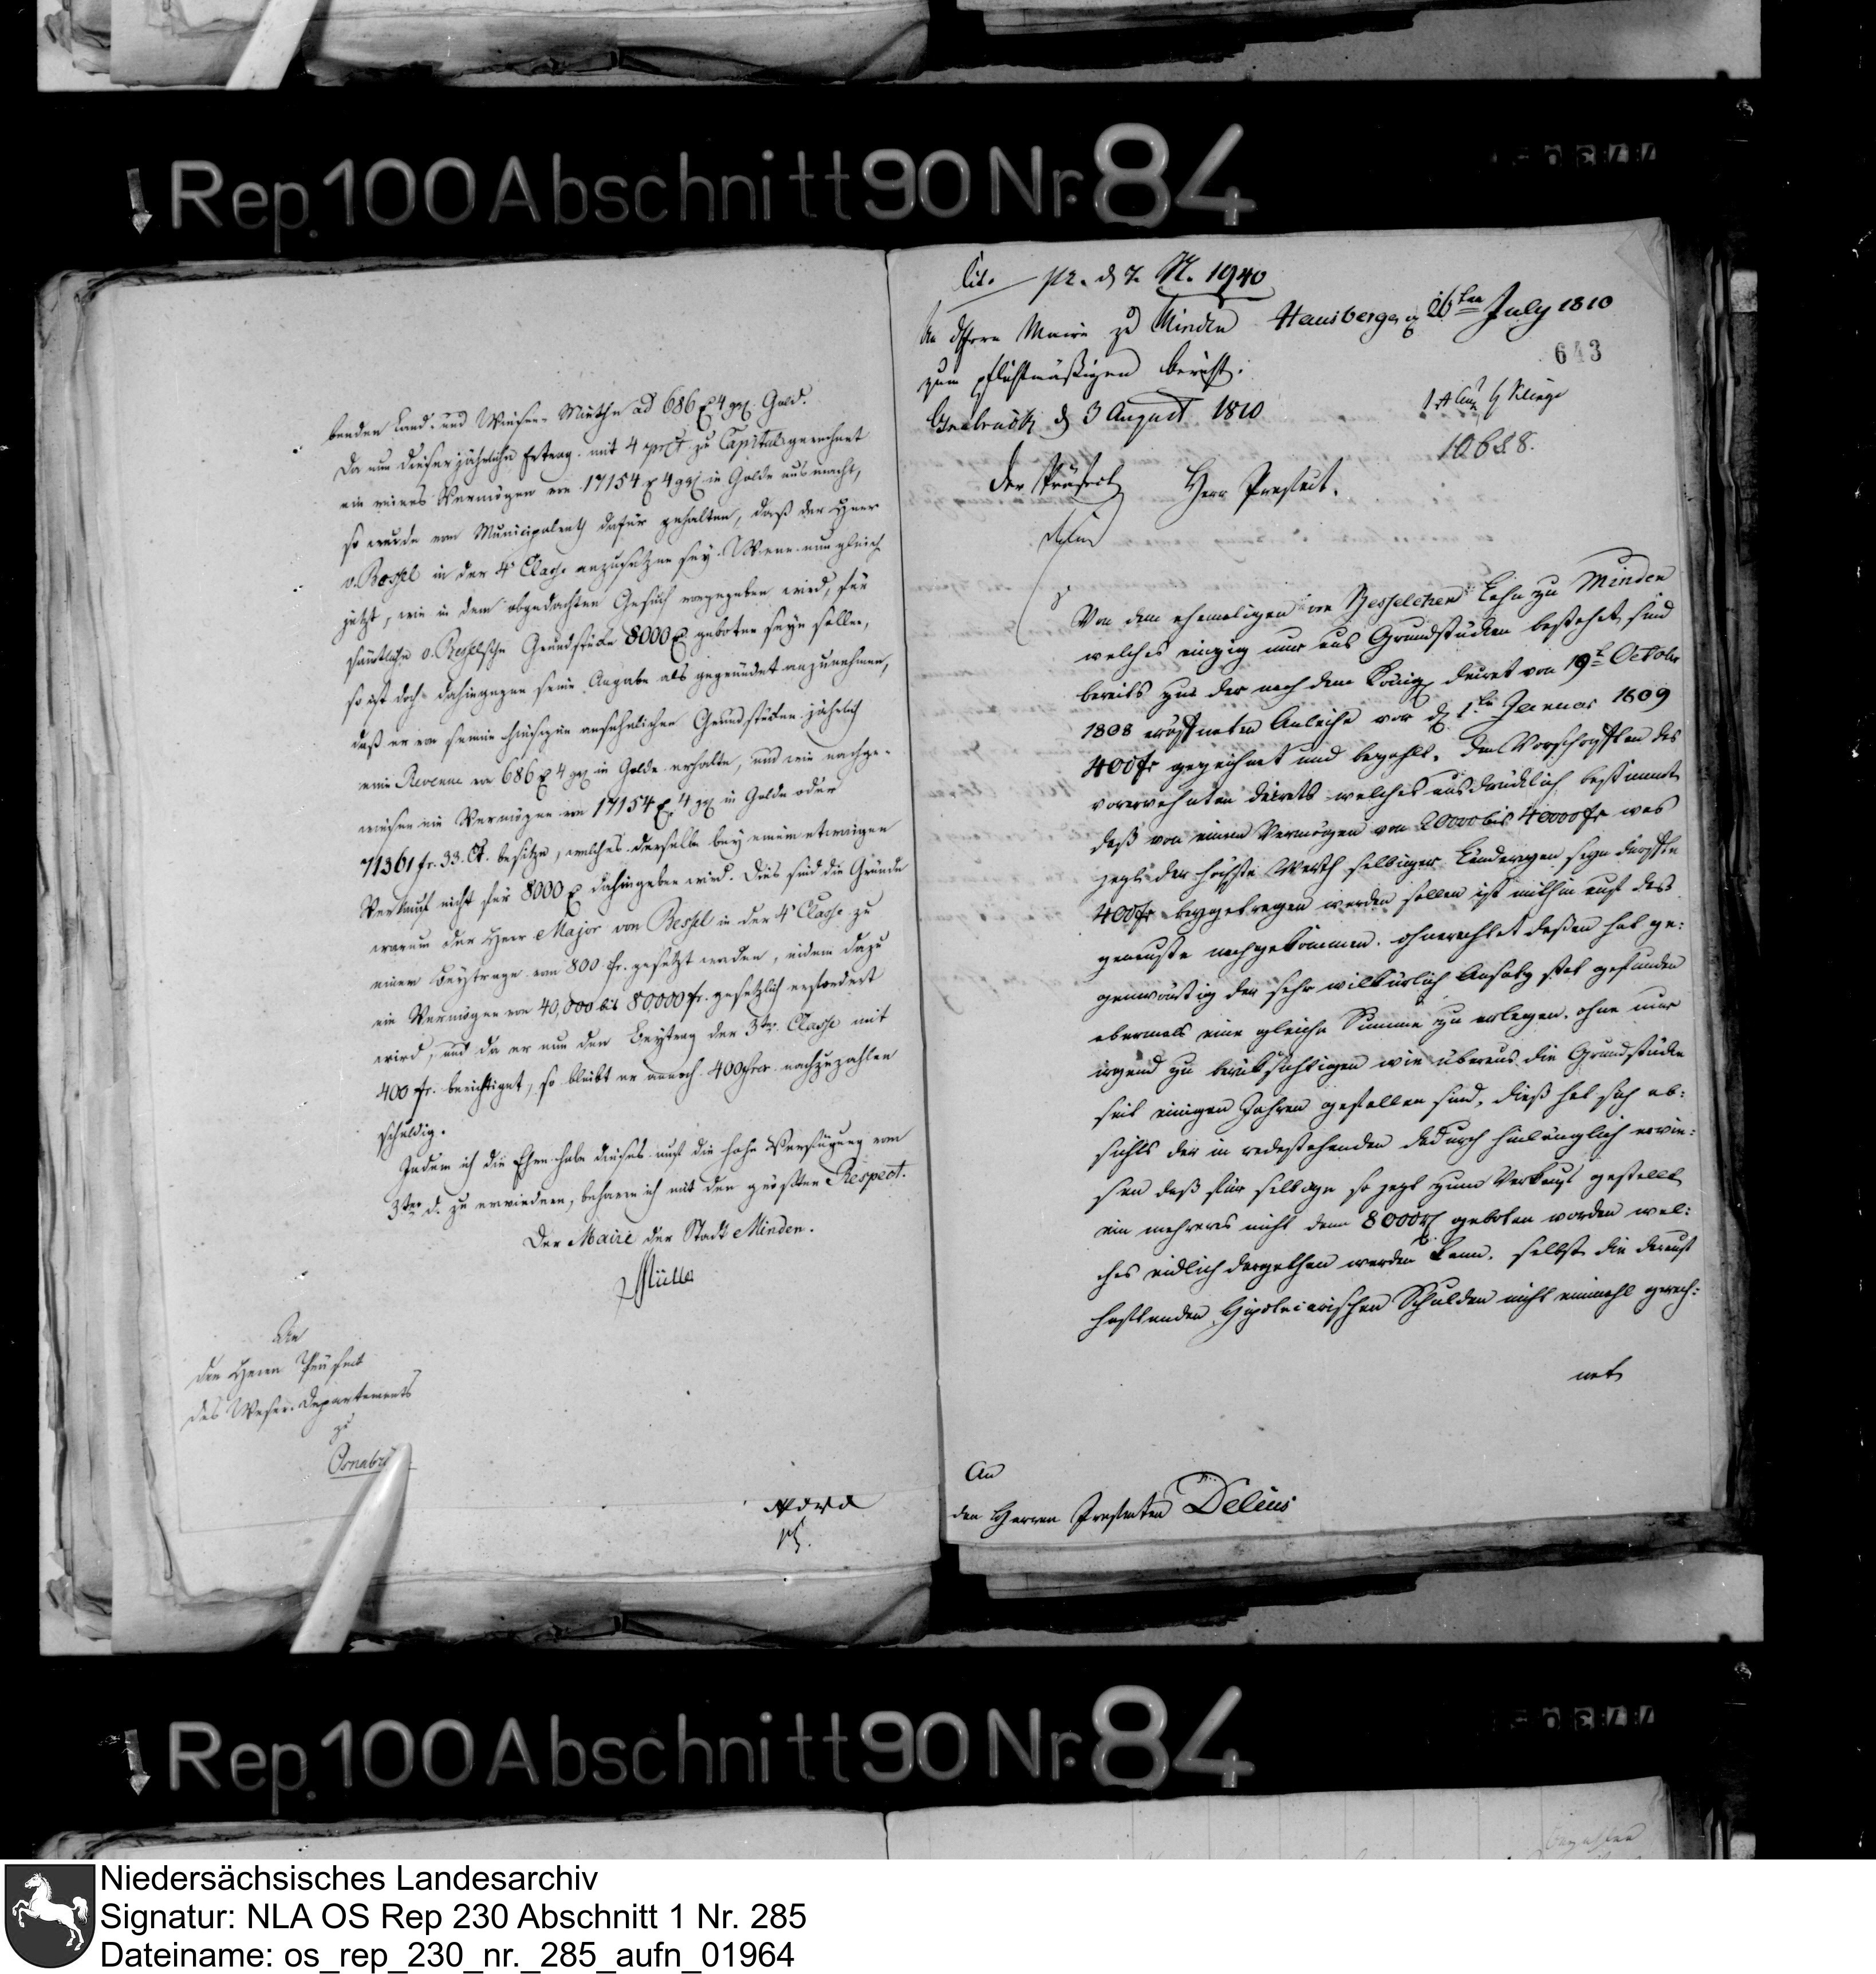 Rep. 100 Abschnitt 90 Nr. 84
benden Land- und Wiesen-Miethe ad 686 rt 4 ggr. Gold.
Da nun dieser jährliche Ertrag mit 4 proCt zu Capital gerechnet
ein reines Vermögen von 17154 rt 4 ggr in Golde ausmacht,
so wurde vom Municipalrath dafür gehalten, daß der Herr
v. Bessel in der 4t Classe anzusetzen sey. Wenn nun gleich
jetzt, wie in dem obgedachten Gesuch vorgegeben wird, für
sämtliche v. Besselsche Grundstücke 8000 rt geboten seyn sollen,
so ist doch dahingegen seine Angabe als gegründet anzunehmen,
daß er von seinen hiesigen ansehnlichen Grundstücken jährlich
eine Revenue von 686 rt 4 ggr in Golde erhalte, und wie nachge-
wiesen ein Vermögen von 17154 rt 4 ggr in Golde oder
71361 fr. 33 Ct. besitze, welches derselbe bey einem etwaigen
Verkauf nicht für 8000 rt dahingeben wird. Dies sind die Gründe
warum der Herr Major von Bessel in der 4t Classe zu
einem Beytrage von 800 fr. gesetzt worden, indem dazu
ein Vermögen von 40,000 bis 80000 fr. gesetzlich erfordert
wird, und da er nun den Beytrag der 3ten Classe mit
400 fr. berichtiget, so bleibt er annoch 400 frcs nachzuzahlen
schuldig.
Indem ich die Ehre habe dieses auf die hohe Verfügung vom
3ten d. zu erwiedern, beharre ich mit den größten Respect.
Der Maire der Stadt Minden.
Müller
An
den Herrn Präfect
des Weser-Departements
zu
Osnabrü
Cit. pr. d 7. N. 1940
An Herrn Maire zu Minden
zum pflichtmäßigen Bericht.
Osnabrück d 3 August 1810
Der Präfect
Hausberge d 26ten July 1810
643
10688.
Herr Prefect.
Von dem ehemaligen von Besselschen Lehn zu Minden
welches einzig nur aus Grundstücken bestehet, sind
bereits zu der nach dem Königl. Decret von 19t October
1808 eröffneten Anleihe vor d 1ten Januar 1809
400 fr gezeichnet und bezahlt. Den Vorschriften des
vorerwehnten Decrets welches ausdrücklich bestimmt
daß von einem Vermögen von 20000 bis 40000 fr was
jezt der höchste Werth selbiger Ländereyen seyn dürfte
400 fr beygetragen werden sollen ist mithin auf das
genauste nachgekommen. ohnerachtet deßen hat ge-
genwärtig der sehr willkürlich Ansatz stat gefunden
abermals eine gleiche Summe zu erlegen, ohne nur
irgend zu berüksichtigen wie überaus die Grundstücke
seit einigen Jahren gefallen sind, dieß hat sich ab-
sichts der in rede stehenden dadurch hinlänglich erwie-
sen daß für selbige so jezt zum Verkauf gestellt
ein mehreres nicht denn 8000 rt geboten worden wel-
ches eidlich dargethan werden kann. selbst die darauf
haftenden Hipotecarischen Schulden nicht einmahl gerech-
net
An
den Herren Prefecten Delius
Rep. 100 Abschnitt 90 Nr. 84
Niedersächsisches Landesarchiv
Signatur: NLA OS Rep 230 Abschnitt 1 Nr. 285
Dateiname: os_rep_230_nr._285_aufn_01964